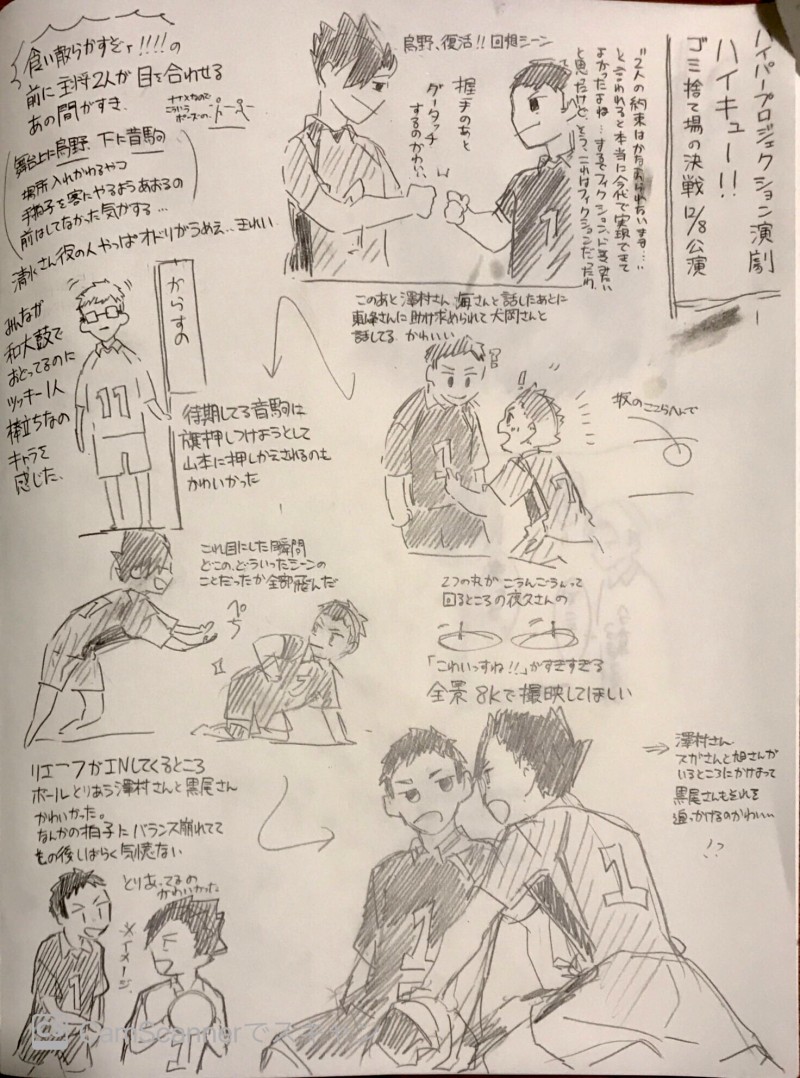 ハイパープロジェクション演劇
ハイキュー!!
ゴミ捨て場の決戦 12/8公演
烏野、復活!! 回想シーン
握手のあと
グータッチ
するのかわいい
と言われると本当に今代で実現できて
食い散らかすぞァ!!!!の
前に主将2人が目を合わせる
あの間がすき
舞台上に烏野、下に音駒
場所入れかわるやつ
手拍子を客にやるようあおるの
前はしてなかった気がする…
清水さん役の人やっぱオドリがうめえ…きれい
からすの
みんなが
和太鼓で
おどってるのに
ツッキー1人
棒立ちなの
キャラを
感じた
11
待期してる音駒は
旗押しつけようとして
山本に押しかえされるのも
かわいかった
このあと澤村さん、海さんと話したあとに
東峰さんに助け求められて犬岡さんと
話してる かわいい
坂のここらへんで
これ目にした瞬間
どこの、どういったシーンの
ことだったか全部飛んだ
ぺち
2つの丸がごうんごうんって
回るところの夜久さんの
「こわいっすね!!」がすきすぎる
全景 8Kで撮映してほしい
リエーフがINしてくるところ
ボールとりあう澤村さんと黒尾さん
かわいかった。
なんかの拍子にバランス崩れてて
もの後しばらく気憶ない
とりあってるの
かわいかった
※イメージ
澤村さん
スガさんと旭さんが
いるところにかけよって
黒尾さんもそれを
追っかけるのかわいい
1
1
1
CamScannerで